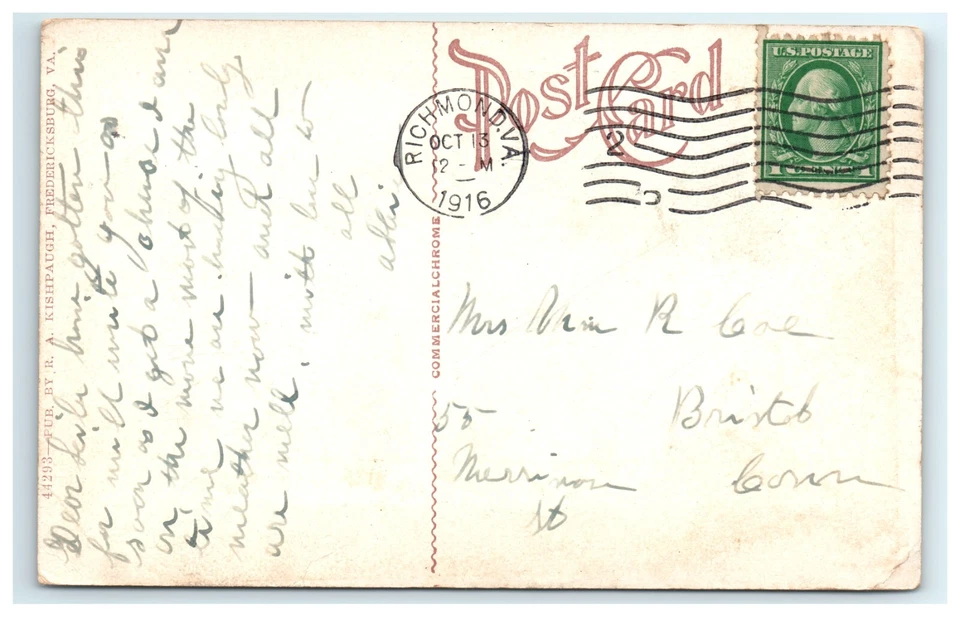 44293—PUB. BY R. A. KISHPAUGH, FREDERICKSBURG, VA.
Dear have gotten this
far will write you as
soon as I get a chance I am
on the move most of the
time we are having lovely
weather now— and all
are well. with love to
all
Post Card
COMMERCIALCHROME
RICHMOND, VA.
OCT 13
2 – M
1916
2
U.S. POSTAGE
1 1
Mrs R Coe
55 Bristol
Merriman Conn
St